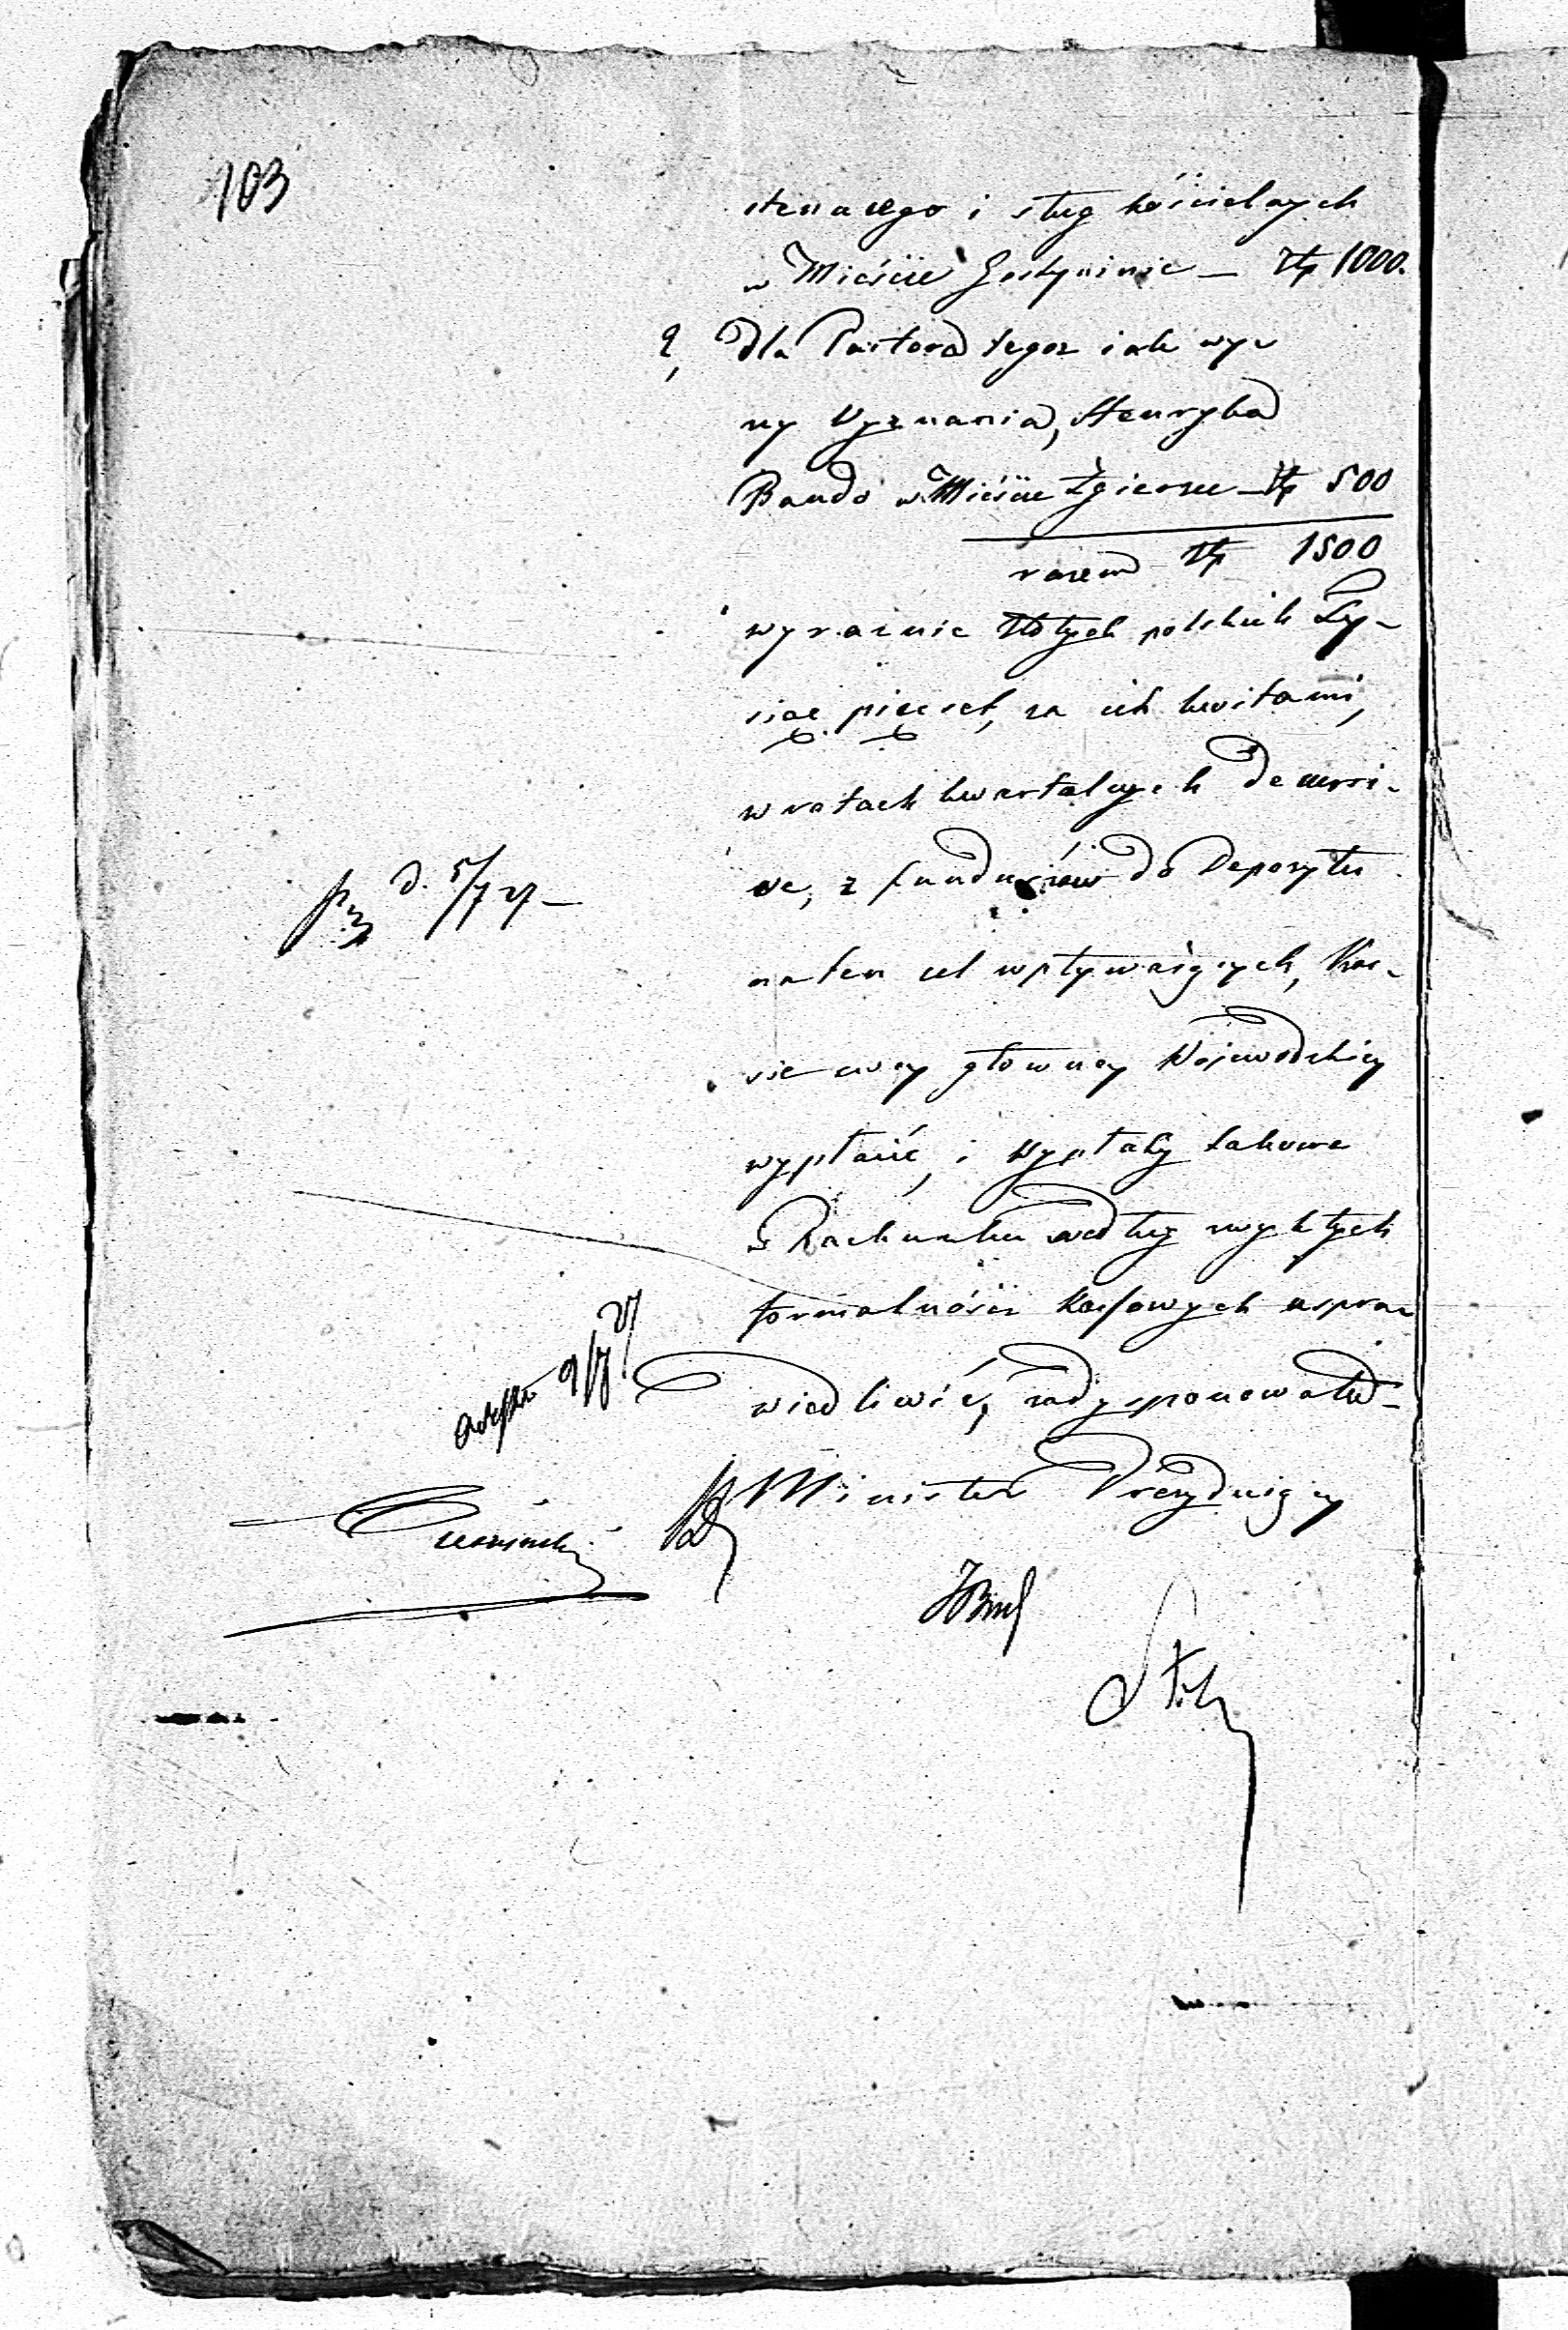 103
stenacego i sług kościelnych
w Mieście Gostyninie — Złp 1000.
2, Dla Pastora tegoż iak wy-
ny Wyznania, Henryka
Bando w Mieście Zgierzu — Złp 500
razem Złp 1500
wyraznie Złotych polskich Ty-
siąc pięćset, za ich kwitami,
w ratach kwartalnych decursi-
ve, z funduszów do Depozytu
na ten cel wpływaiących, Kas-
sie swey głowney Woiewodzkiey
wypłacić, i wypłaty takowe
w Rachunku według zwykłych
formalności Kassowych uspra-
wiedliwić, zadysponował.
Minister Prezyduiący
d. 5/7 27 —
9/7 27